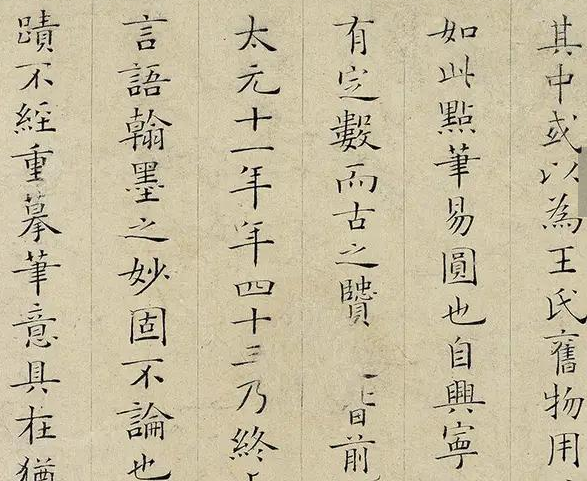 其中或以為王氏舊物用
如此點筆易圓也自興寧
有定數而古之贒 前
太元十一年年四十三乃終
言語翰墨之妙固不論也
蹟不經重摹筆意具在猶